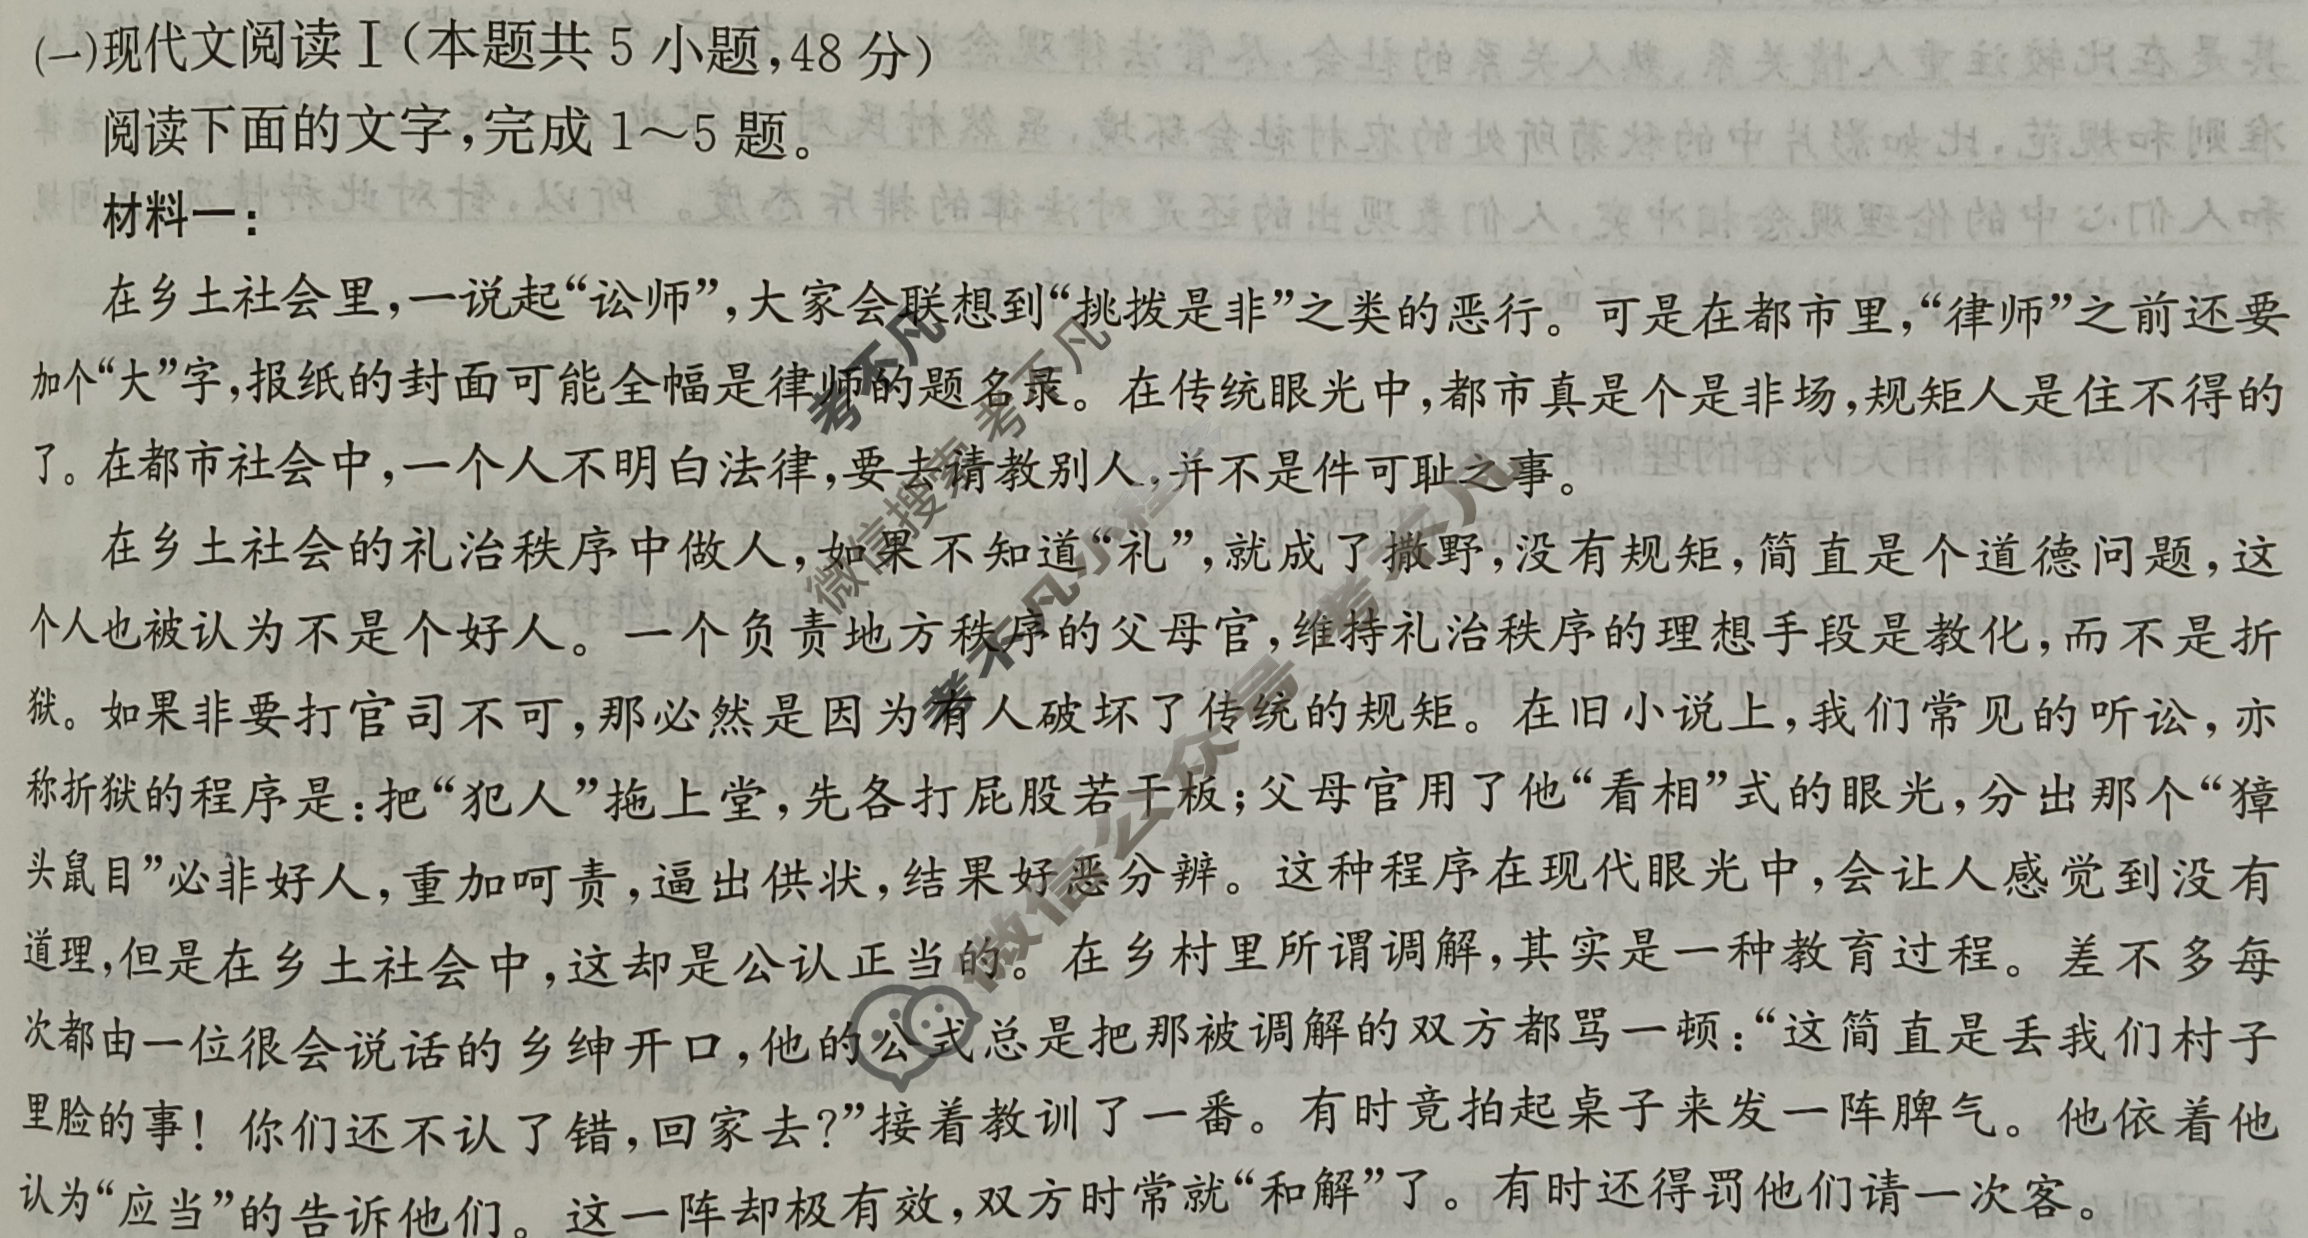 (一)现代文阅读Ⅰ(本题共5小题,48分)
阅读下面的文字,完成1～5题。
材料一:
在乡土社会里,一说起“讼师”,大家会联想到“挑拨是非”之类的恶行。可是在都市里,“律师”之前还要
加个“大”字,报纸的封面可能全幅是律师的题名录。在传统眼光中,都市真是个是非场,规矩人是住不得的
了。在都市社会中,一个人不明白法律,要去请教别人,并不是件可耻之事。
在乡土社会的礼治秩序中做人,如果不知道“礼”,就成了撒野,没有规矩,简直是个道德问题,这
个人也被认为不是个好人。一个负责地方秩序的父母官,维持礼治秩序的理想手段是教化,而不是折
狱。如果非要打官司不可,那必然是因为有人破坏了传统的规矩。在旧小说上,我们常见的听讼,亦
称折狱的程序是:把“犯人”拖上堂,先各打屁股若干板;父母官用了他“看相”式的眼光,分出那个“獐
头鼠目”必非好人,重加呵责,逼出供状,结果好恶分辨。这种程序在现代眼光中,会让人感觉到没有
道理,但是在乡土社会中,这却是公认正当的。在乡村里所谓调解,其实是一种教育过程。差不多每
次都由一位很会说话的乡绅开口,他的公式总是把那被调解的双方都骂一顿:“这简直是丢我们村子
里脸的事!你们还不认了错,回家去?”接着教训了一番。有时竟拍起桌子来发一阵脾气。他依着他
认为“应当”的告诉他们。这一阵却极有效,双方时常就“和解”了。有时还得罚他们请一次客。
考不凡
微信搜索 考不凡
考不凡小程序
微信公众号 考不凡